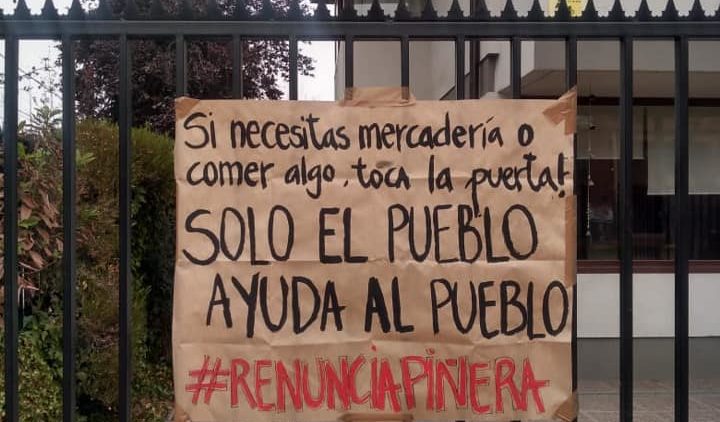 Si necesitas mercadería o
comer algo, toca la puerta!
SOLO EL PUEBLO
AYUDA AL PUEBLO
#RENUNCIAPIÑERA